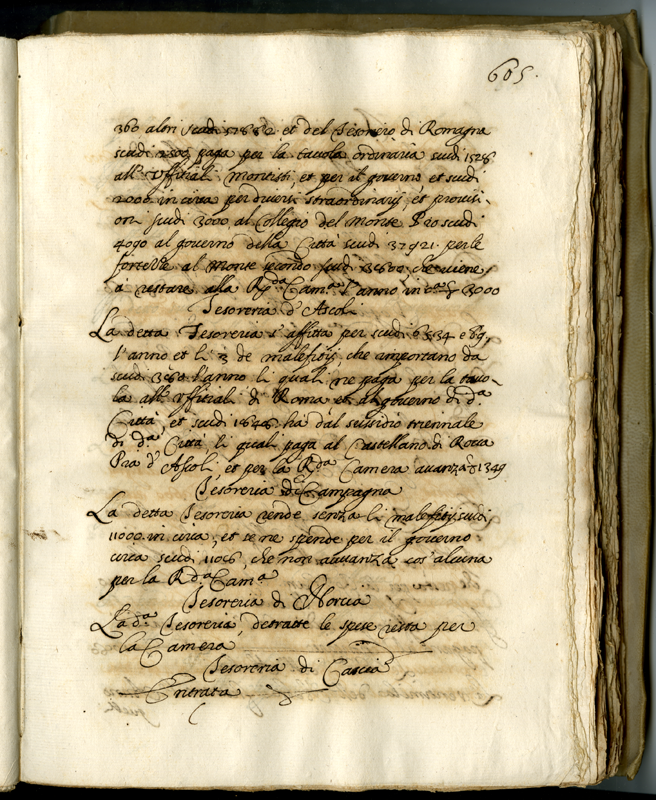 605.
360 altri scudi 57882 et del Tesoriero di Romagna
scudi 2509 paga per la tavola ordinaria scudi 1528
all' Uffitiali Montisti, et per il governo et scudi
2000 in circa per diversi straordinarij et provisi-
oni scudi 3000 al Collegio del Monte Pio scudi
4090 al governo della Città scudi 37921. per le
fortezze al Monte secondo scudi che viene
à restare alla R.da Cam.a l'anno in c.a 3000
Tesoreria d'Ascoli
La detta Tesoreria s'affitta per scudi 6534 e 89.
l'anno et li 3 de malefitij, che importano da
scudi l'anno li quali ne paga per la tavo-
la all' Uffitiali di Roma et al governo di d.a
Città, et scudi 1848. ha dal sussidio triennale
di d.a Città li quali paga al Castellano di Rocca
Pia d'Ascoli et per la R.da Camera avanza 1349
Tesoreria di Campagna
La detta Tesoreria rende senza li malefitij scudi
11000 in circa, et se ne spende per il governo
circa scudi 11056, che non avvanza cos' alcuna
per la R.da Cam.a
Tesoreria di Norcia
La d.a Tesoreria, detratte le spese resta per
la Camera
Tesoreria di Cascia
Entrata